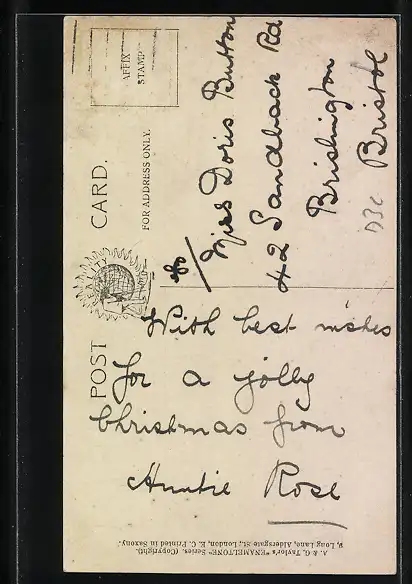 POST CARD.
AFFIX
STAMP
FOR ADDRESS ONLY.
REALITY
To/
Miss Doris Button
42 Sandback Rd
Brislington
Bristol
D3c
With best wishes
for a jolly
Christmas from
Auntie Rose
A. & G. Taylor's "ENAMELTONE" Series. (Copyright).
Long Lane, Aldersgate St., London, E. C. Printed in Saxony.